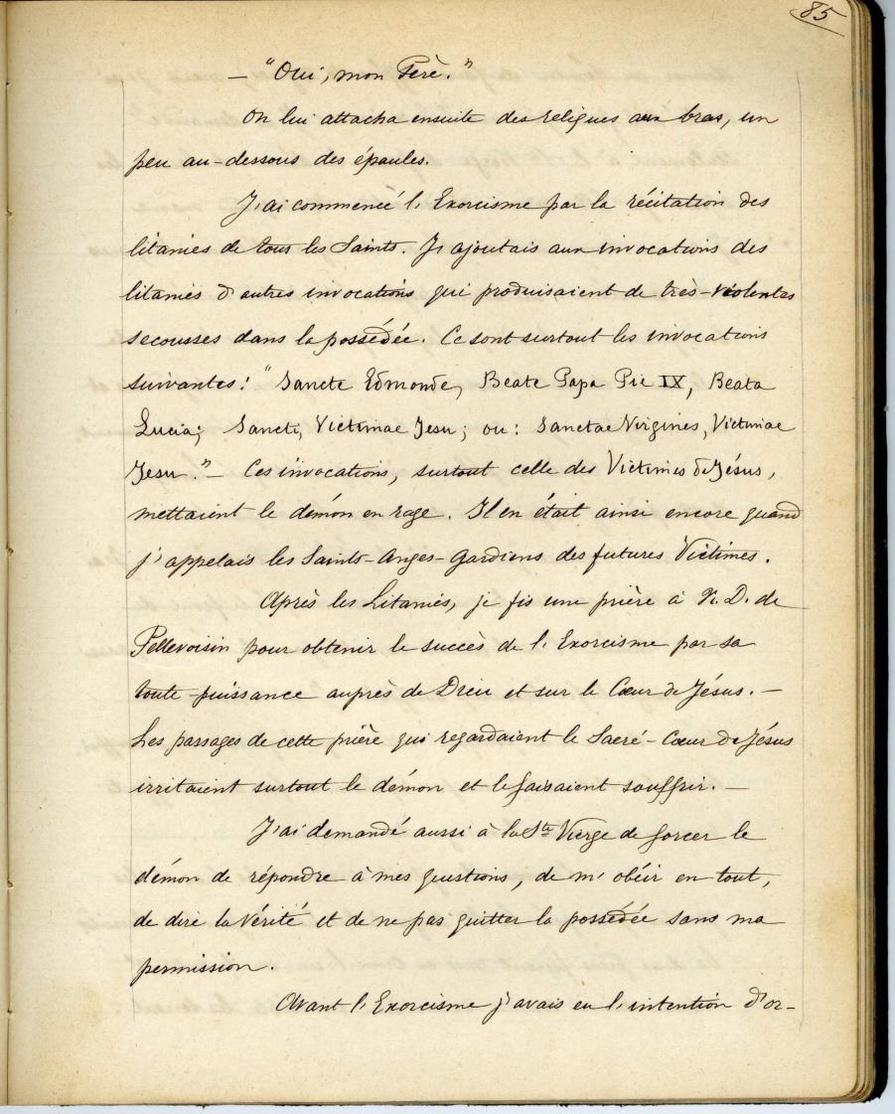 85
— "Oui, mon Père."
On lui attacha ensuite des reliques aux bras, un
peu au-dessous des épaules.
J'ai commencé l'Exorcisme par la récitation des
litanies de tous les Saints. J'ajoutais aux invocations des
litanies d'autres invocations qui produisaient de très-violentes
secousses dans la possédée. Ce sont surtout les invocations
suivantes: "Sancte Edmonde, Beate Papa Pie IX, Beata
Lucia; Sancti, Victimae Jesu; ou: Sanctae Virgines, Victimae
Jesu." — Ces invocations, surtout celle des Victimes de Jésus,
mettaient le démon en rage. Il en était ainsi encore quand
j'appelais les Saints-Anges-Gardiens des futures Victimes.
Après les Litanies, je fis une prière à N. D. de
Pellevoisin pour obtenir le succès de l'Exorcisme par sa
toute-puissance auprès de Dieu et sur le Cœur de Jésus. —
Les passages de cette prière qui regardaient le Sacré-Cœur de Jésus
irritaient surtout le démon et le faisaient souffrir. —
J'ai demandé aussi à la Ste Vierge de forcer le
démon de répondre à mes questions, de m'obéir en tout,
de dire la vérité et de ne pas quitter la possédée sans ma
permission.
Avant l'Exorcisme j'avais eu l'intention d'or-